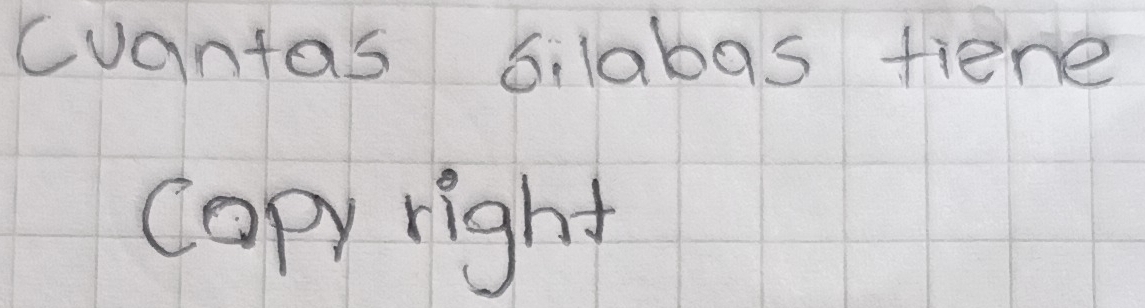 Cuantas silabas tiene
Copy right